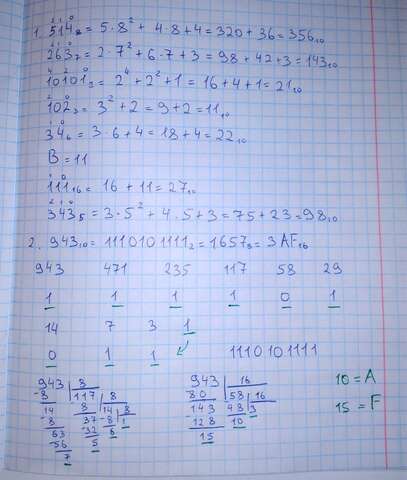 1. 514₈ = 5·8² + 4·8+4 = 320 + 36 = 356₁₀
263₇ = 2·7² + 6·7 + 3 = 98 + 42 + 3 = 143₁₀
10101₂ = 2⁴ + 2² + 1 = 16 + 4 + 1 = 21₁₀
102₃ = 3² + 2 = 9 + 2 = 11₁₀
34₆ = 3·6 + 4 = 18 + 4 = 22₁₀
B = 11
111₁₆ = 16 + 11 = 27₁₀
343₅ = 3·5² + 4·5 + 3 = 75 + 23 = 98₁₀
2. 943₁₀ = 1110101111₂ = 1657₈ = 3AF₁₆
943 471 235 117 58 29
1 1 1 1 0 1
14 7 3 1
0 1 1 1110101111
943 8 943 16 10 = A
-8 117 8 -80 58 16 15 = F
14 8 14 8 143 48 3
-8 37 -8 1 -128 10
63 -32 6 15
-56 5
7